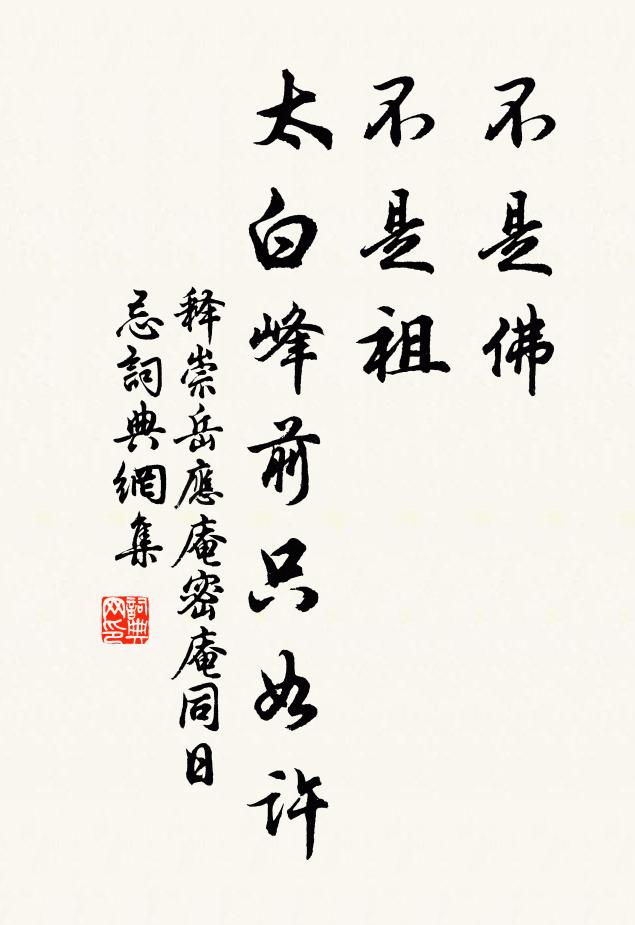 不是佛
不是祖
太白峰前只如许
释崇岳應庵密庵同日
忌詞典網集
詞典
网印